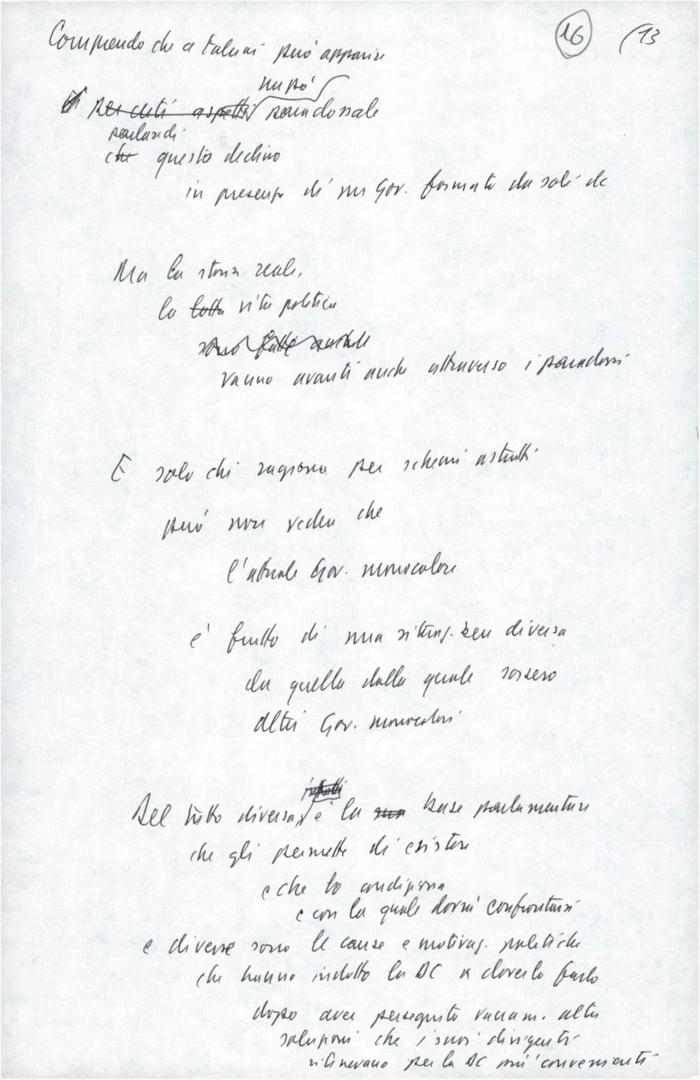 16 13
Comprendo che a taluni può apparire
un po'
per certi aspetti paradossale
parlarsi
che questo declino
in presenza di un Gov. formato da soli dc
Ma la storia reale,
la lotta vita politica
sono fatte anche
vanno avanti anche attraverso i paradossi
E solo chi ragiona per schemi astratti
può non vedere che
l'attuale Gov. monocolore
è frutto di una situaz. ben diversa
da quella dalla quale sorsero
altri Gov. monocolori
infatti
Del tutto diversa è la sua base parlamentare
che gli permette di esistere
e che lo condiziona
e con la quale dovrà confrontarsi
e diverse sono le cause e motivaz. politiche
che hanno indotto la DC a doverlo fare
dopo aver perseguito vanam. altre
soluzioni che i suoi dirigenti
ritenevano per la DC più convenienti